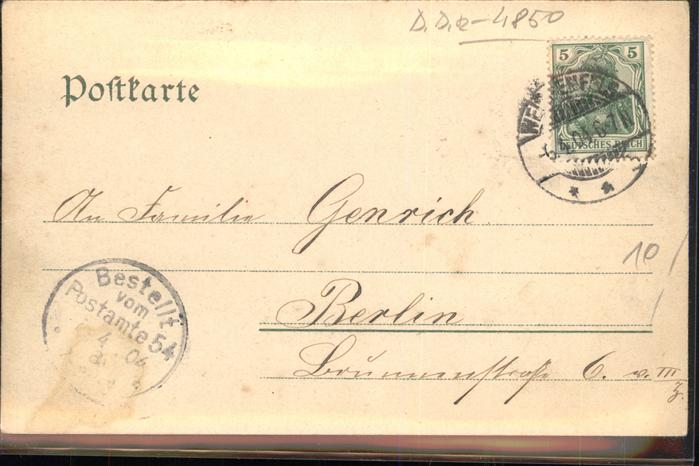 D.D.R-4850
Postkarte
5 5
DEUTSCHES REICH
WEISSENFELS
An Familie Genrich
10
Berlin
Brunnenstraße 6. v. III
Bestellt
vom
Postamte 54
4 04